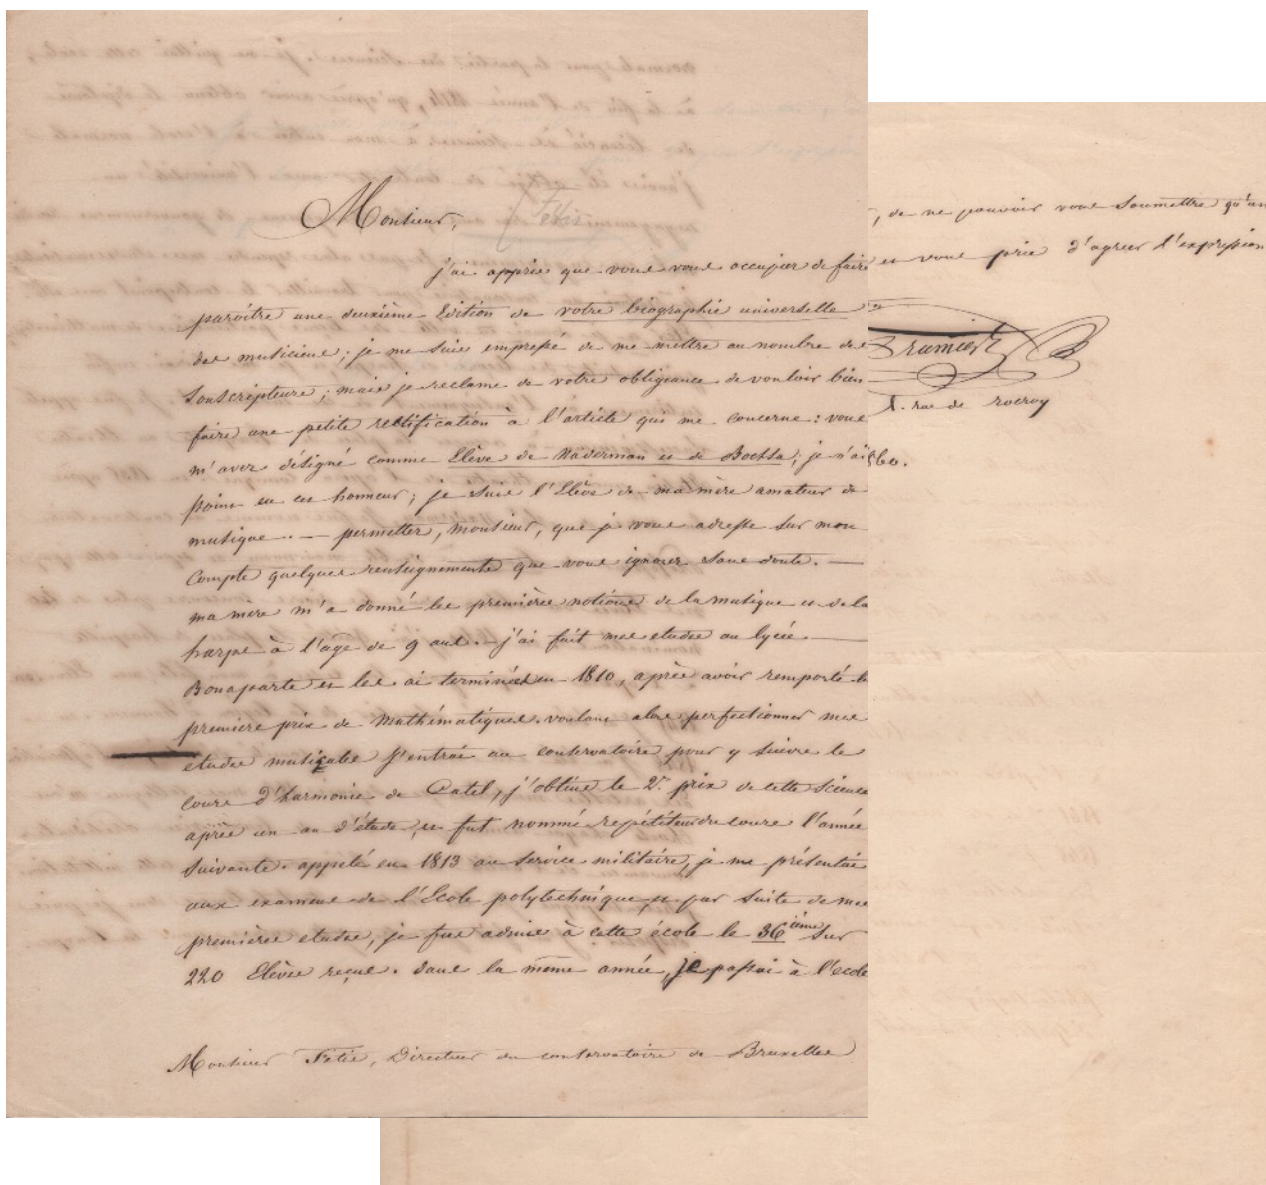 Monsieur,
[Fétis
j'ai appris que vous vous occupiez de faire
paroître une deuxième Edition de votre biographie universelle
des musiciens; je me suis empressé de me mettre au nombre des
souscripteurs; mais je reclame de votre obligeance de vouloir bien
faire une petite rectification à l'article qui me concerne: vous
m'avez désigné comme Elève de Naderman et de Bochsa; je n'ai
point eu cet honneur; je suis l'Elève de ma mère amateur de
musique. — permettez, Monsieur, que je vous adresse sur mon
compte quelques renseignements que vous ignorez sans doute. —
ma mère m'a donné les premières notions de la musique et de la
harpe à l'âge de 9 ans. — j'ai fait mes etudes au lycée
Bonaparte et les ai terminées en 1810, après avoir remporté le
premier prix de Mathématiques. voulant alors perfectionner mes
etudes musicales j'entrai au conservatoire pour y suivre le
cours d'harmonie de Catel, j'obtins le 2e prix de cette science
après un an d'étude, et fut nommé repétiteur du cours l'année
suivante. appelé en 1813 au service militaire, je me présentai
aux examens de l'Ecole polytechnique, et par suite de mes
premières etudes, je fus admis à cette école le 36ième sur
220 Elèves reçus. dans la même année, je passai à l'école
Monsieur Fétis, Directeur du conservatoire de Bruxelles
, de ne pouvoir vous soumettre qu'un
et vous prie d'agréer l'expression
Prumier
rue de rocroy
60.